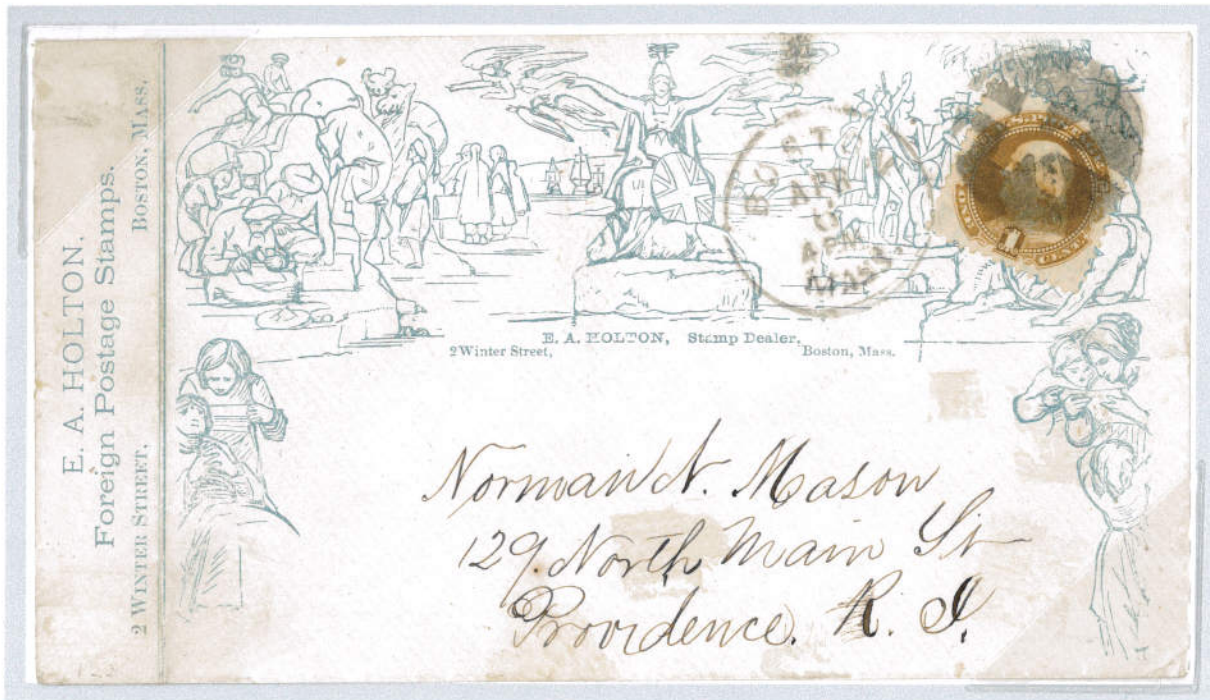 E. A. HOLTON.
Foreign Postage Stamps.
2 WINTER STREET. BOSTON, MASS.
BOST
APR
4 PM
MASS.
ONE CENT
1
E. A. HOLTON, Stamp Dealer,
2 Winter Street, Boston, Mass.
Norman N. Mason
129 North Main St
Providence. R. I.